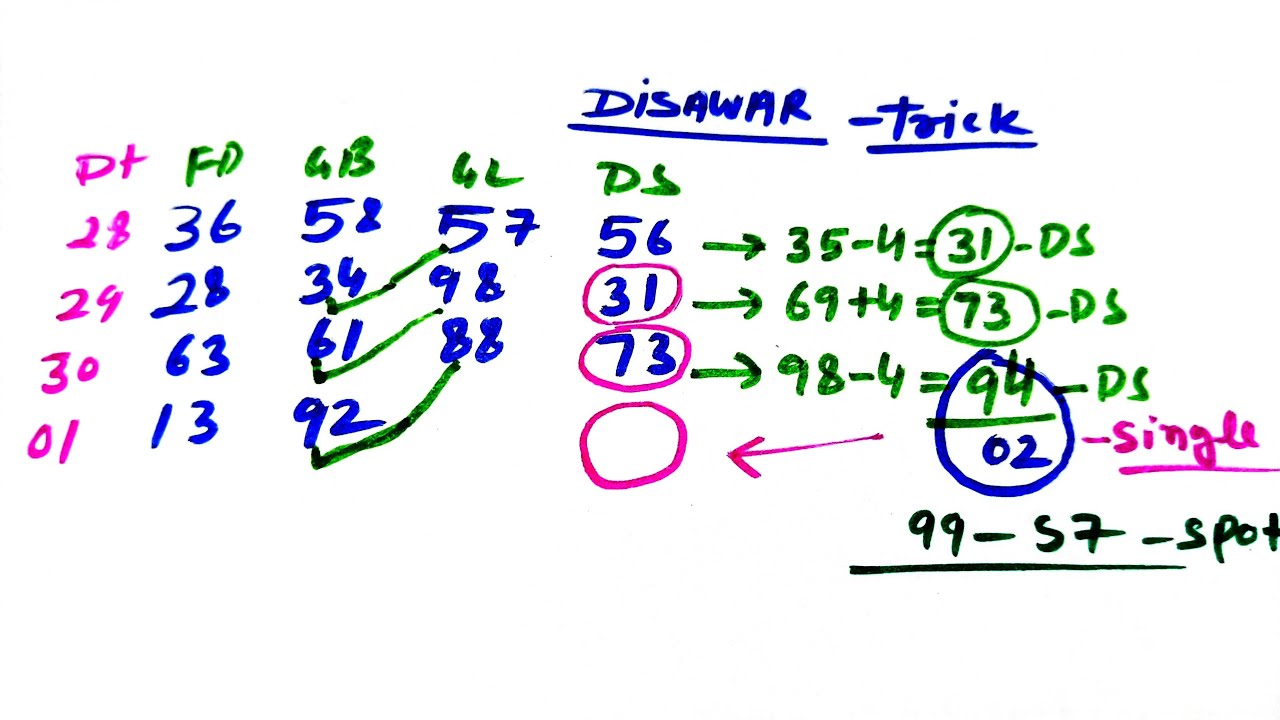 DISAWAR - Trick
Dt FD GB GL DS
28 36 58 57 56 → 35-4=31-DS
29 28 34 98 31 → 69+4=73-DS
30 63 61 88 73 → 98-4=94-DS
01 13 92
02 -single
99-57-spot